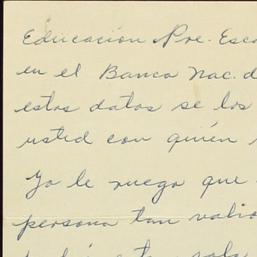 Educación Pre-Esco
en el Banco Nac. d
estos datos se los
usted con quién
Yo le ruego que
persona tan valio